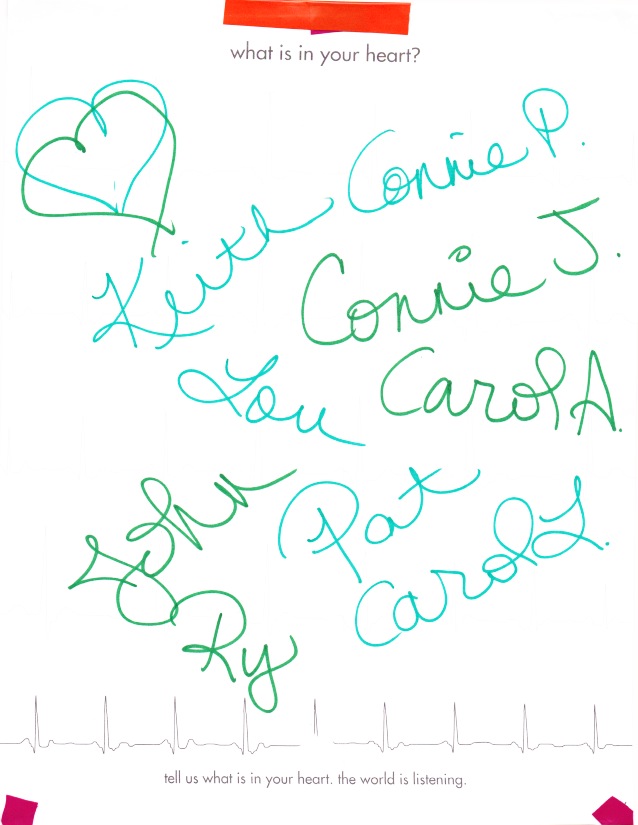 what is in your heart?
Connie P.
Keith
Connie J.
Lou
Carol A.
John
Pat
Carol L.
Ry
tell us what is in your heart. the world is listening.